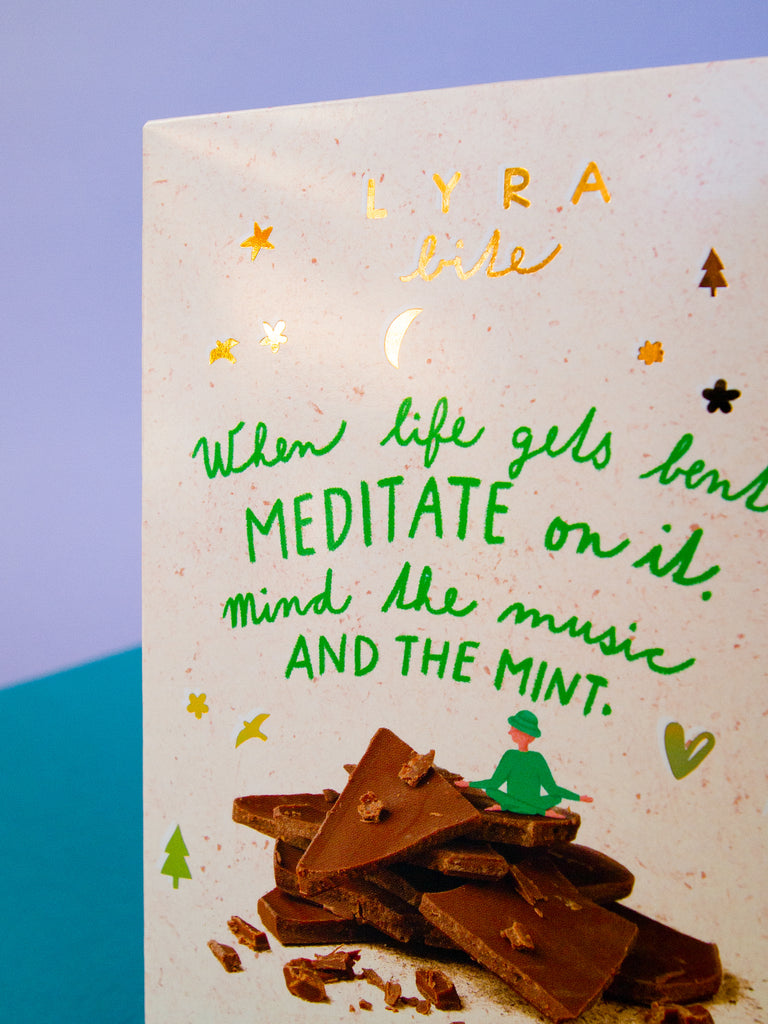 LYRA
bite
When life gets bent
MEDITATE on it.
mind the music
AND THE MINT.